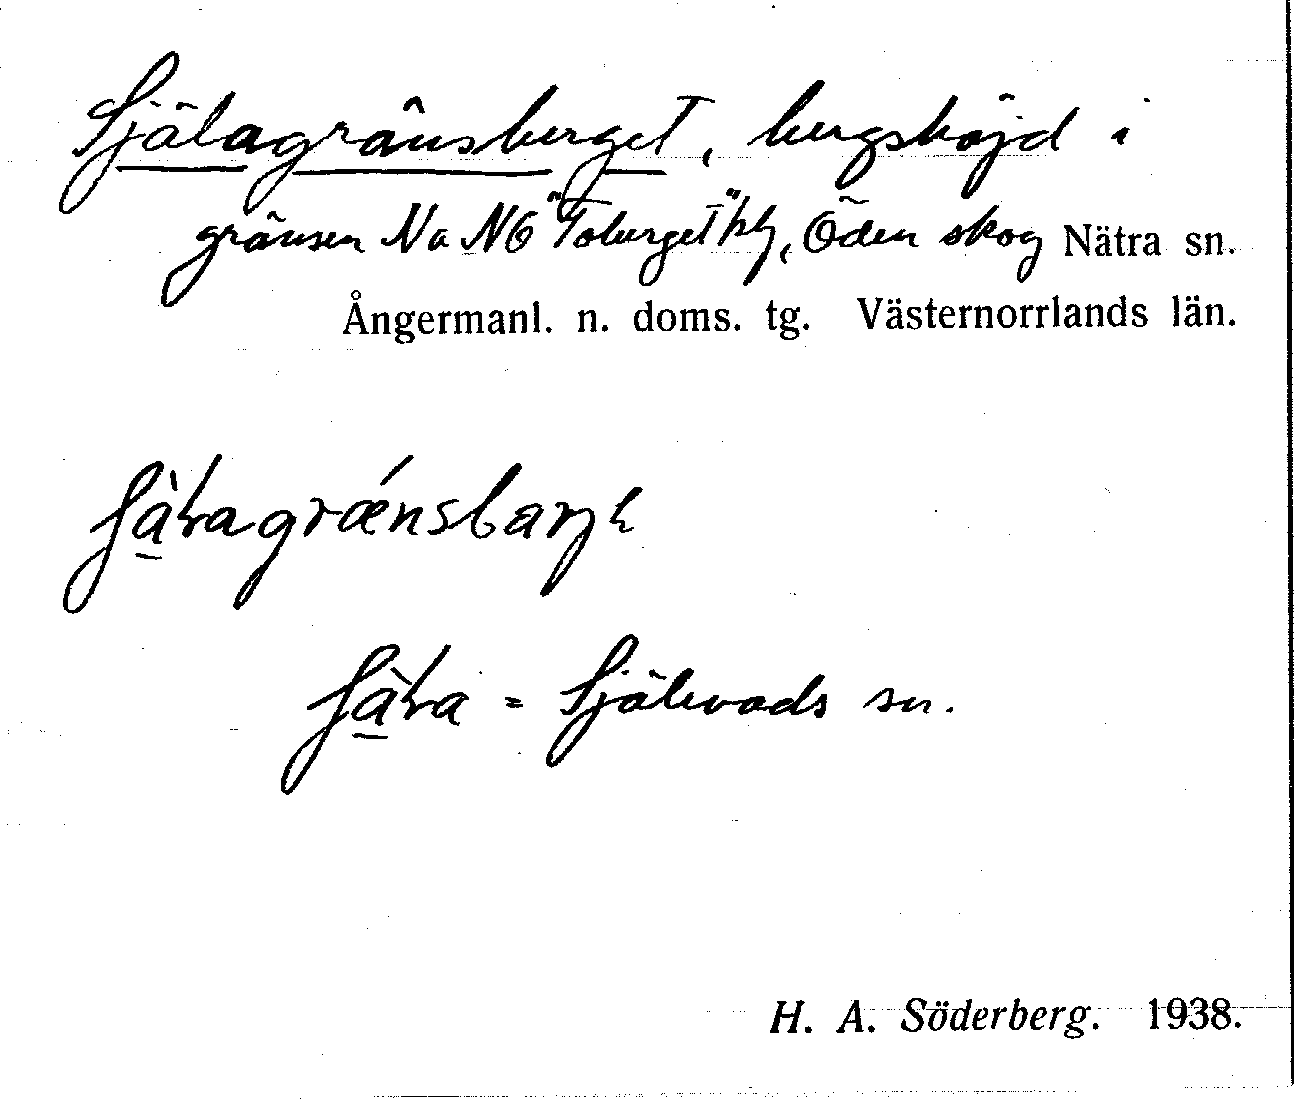 Själagränsberget, bergshöjd i
gränsen N a NO "Toberget" kbl, Öden skog Nätra sn.
Ångermanl. n. doms. tg. Västernorrlands län.
ʃàɽagrǽnsbarjɛ
ʃàɽa = Själevads sn.
H. A. Söderberg. 1938.